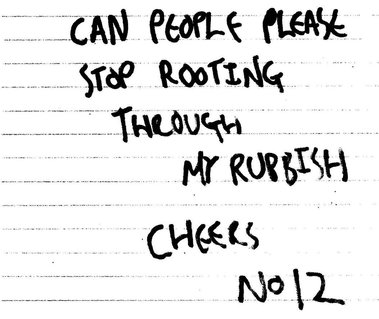 CAN PEOPLE PLEASE
STOP ROOTING
THROUGH
MY RUBBISH
CHEERS
NO 12